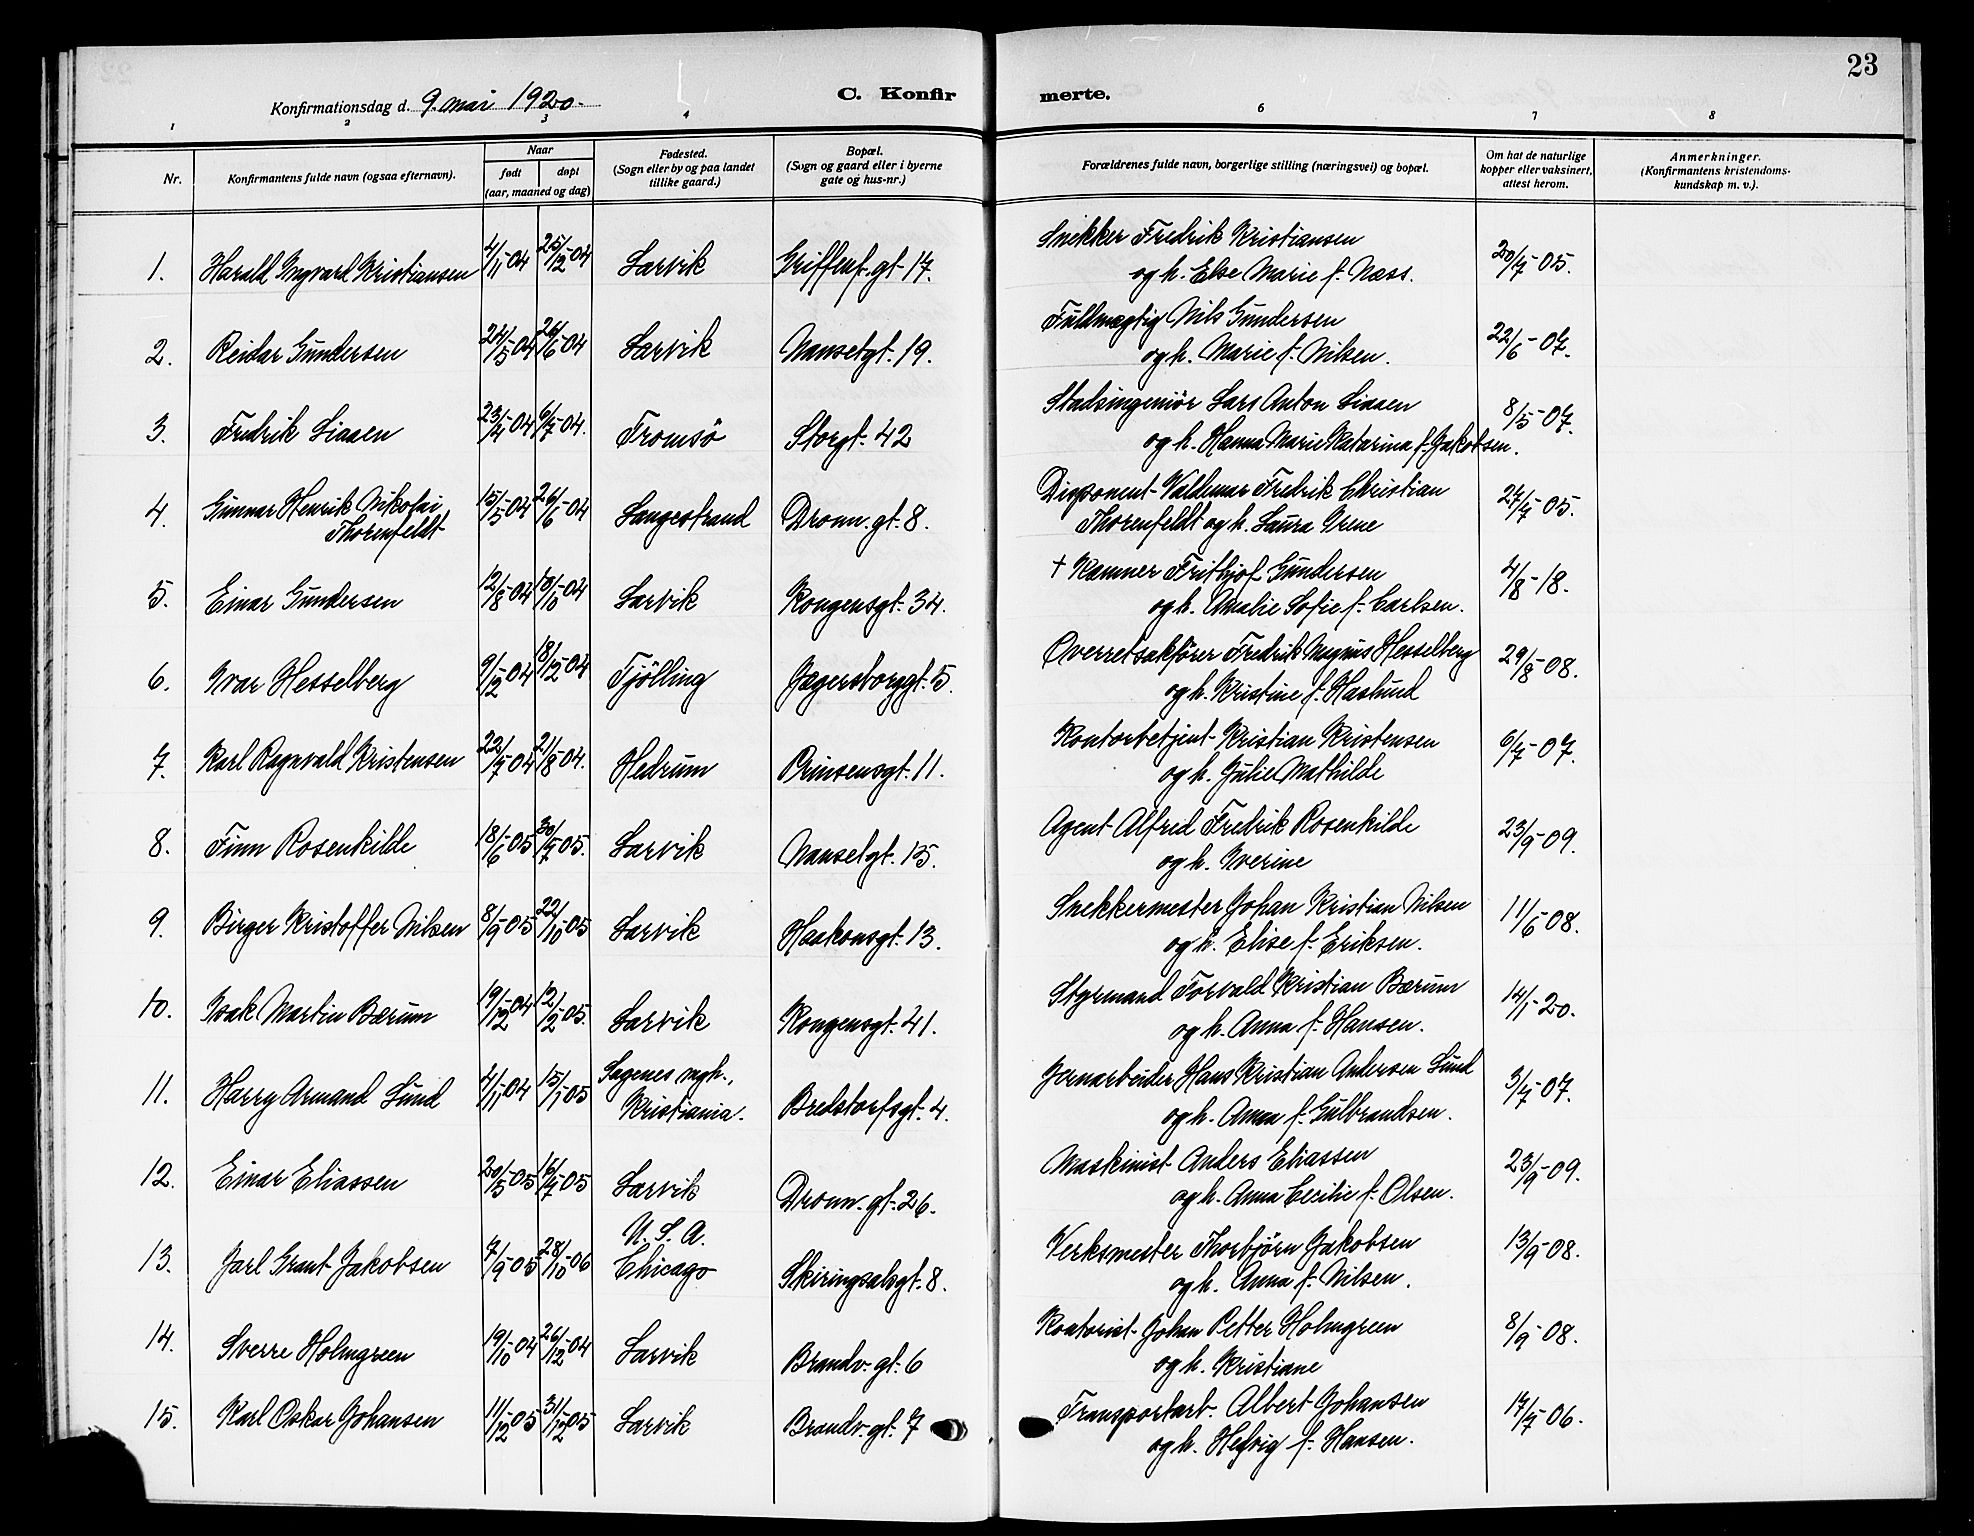 23
Konfirmationsdag d. 9. mai 1920.
C. Konfirmerte.
1 2 3 4 6 7 8
Nr. Konfirmantens fulde navn (ogsaa efternavn). Naar født døpt (aar, maaned og dag) Fødested. (Sogn eller by og paa landet tillike gaard.) Bopæl. (Sogn og gaard eller i byerne gate og hus-nr.) Forældrenes fulde navn, borgerlige stilling (næringsvei) og bopæl. Om hat de naturlige kopper eller vaksinert, attest herom. Anmerkninger. (Konfirmantens kristendomskundskap m. v.).
1. Harald Ingvard Kristiansen 4/11-04 25/12-04 Larvik Griffenf. gt. 17. Snekker Fredrik Kristiansen
og h. Else Marie f. Næss. 20/7-05.
2. Reidar Gundersen 24/5-04 26/6-04 Larvik Nansetgt. 19. Fuldmægtig Nils Gundersen
og h. Marie f. Nilsen. 22/6-07.
3. Fredrik Liaaen 23/4-04 6/7-04. Tromsö Storgt. 42 Stadsingeniör Lars Anton Liaaen
og h. Hanna Marie Katarina f. Jakobsen. 8/5-07.
4. Gunnar Henrik Nikolai
Thorenfeldt 15/5-04 26/6-04 Langestrand Dronn. gt. 8. Disponent Valdemar Fredrik Christian
Thorenfeldt og h. Laura Irene 27/7-05.
5. Einar Gundersen 12/8-04 10/10-04 Larvik Kongensgt. 34. + Kamner Frithjof Gundersen
og h. Amalie Sofie f. Carlsen. 4/8-18.
6. Ivar Hesselberg 9/12-04 18/12-04 Tjölling Jegersborggt. 5. Overretsakfører Fredrik Magnus Hesselberg
og h. Kristine f. Haslund 29/8-08.
7. Karl Ragnvald Kristensen 22/7-04 21/8-04. Hedrum Prinsensgt. 11. Kontorbetjent Kristian Kristensen
og h. Julie Mathilde 6/7-07.
8. Finn Rosenkilde 18/6-05 30/7-05. Larvik Nansetgt. 15. Agent Alfred Fredrik Rosenkilde
og h. Iverine 23/9-09.
9. Birger Kristoffer Nilsen 8/9-05 22/10-05 Larvik Haakonsgt. 13. Snekkermester Johan Kristian Nilsen
og h. Elise f. Eriksen. 11/6-08.
10. Isak Martin Bærum 19/12-04 12/2-05. Larvik Kongensgt. 41. Styrmand Torvald Kristian Bærum
og h. Anna f. Hansen. 14/1-20.
11. Harry Armand Lund 4/11-04 15/1-05 Sagenes mgh.,
Kristiania. Bredstorfsgt. 4. Jernarbeider Hans Kristian Andersen Lund
og h. Anna f. Gulbrandsen. 3/7-07.
12. Einar Eliassen 20/5-05 16/7-05 Larvik Dronn. gt. 26. Maskinist Anders Eliassen
og h. Anna Cecilie f. Olsen. 23/9-09.
13. Jarl Grant Jakobsen 7/9-05 28/10-06 U. S. A.
Chicago Skiringsalsgt. 8. Verksmester Thorbjörn Jakobsen
og h. Anna f. Nilsen. 13/9-08.
14. Sverre Holmgreen 19/10-04 26/12-04 Larvik Brandv. gt. 6 Kontorist Johan Petter Holmgreen
og h. Kristiane 8/9-08.
15. Karl Oskar Johansen 11/12-05 31/12-05 Larvik Brandv. gt. 7 Transportarb. Albert Johansen
og h. Hedvig f. Hansen. 17/7-06.